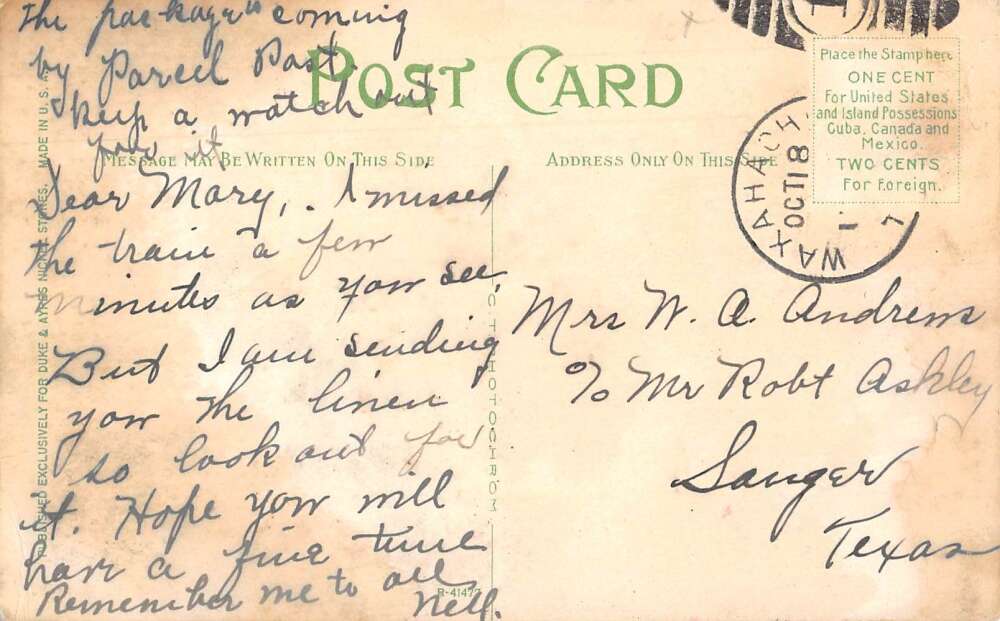 The package is coming
by Parcel Post.
Keep a watch out
for it
POST CARD
MESSAGE MAY BE WRITTEN ON THIS SIDE
ADDRESS ONLY ON THIS SIDE
Place the Stamp here
ONE CENT
For United States
and Island Possessions
Cuba, Canada and
Mexico.
TWO CENTS
For Foreign.
WAXAHACH
OCT 18
Dear Mary, I missed
the train a few
minutes as you see,
But I am sending
you the linen
so look out for
it. Hope you will
have a fine time
Remember me to all
Nell.
Mrs W. A. Andrews
c/o Mr Robt Ashley
Sanger
Texas
PUBLISHED EXCLUSIVELY FOR DUKE & AYRES NICKEL STORES. MADE IN U. S. A.
C. T. PHOTOCHROM
R-41477